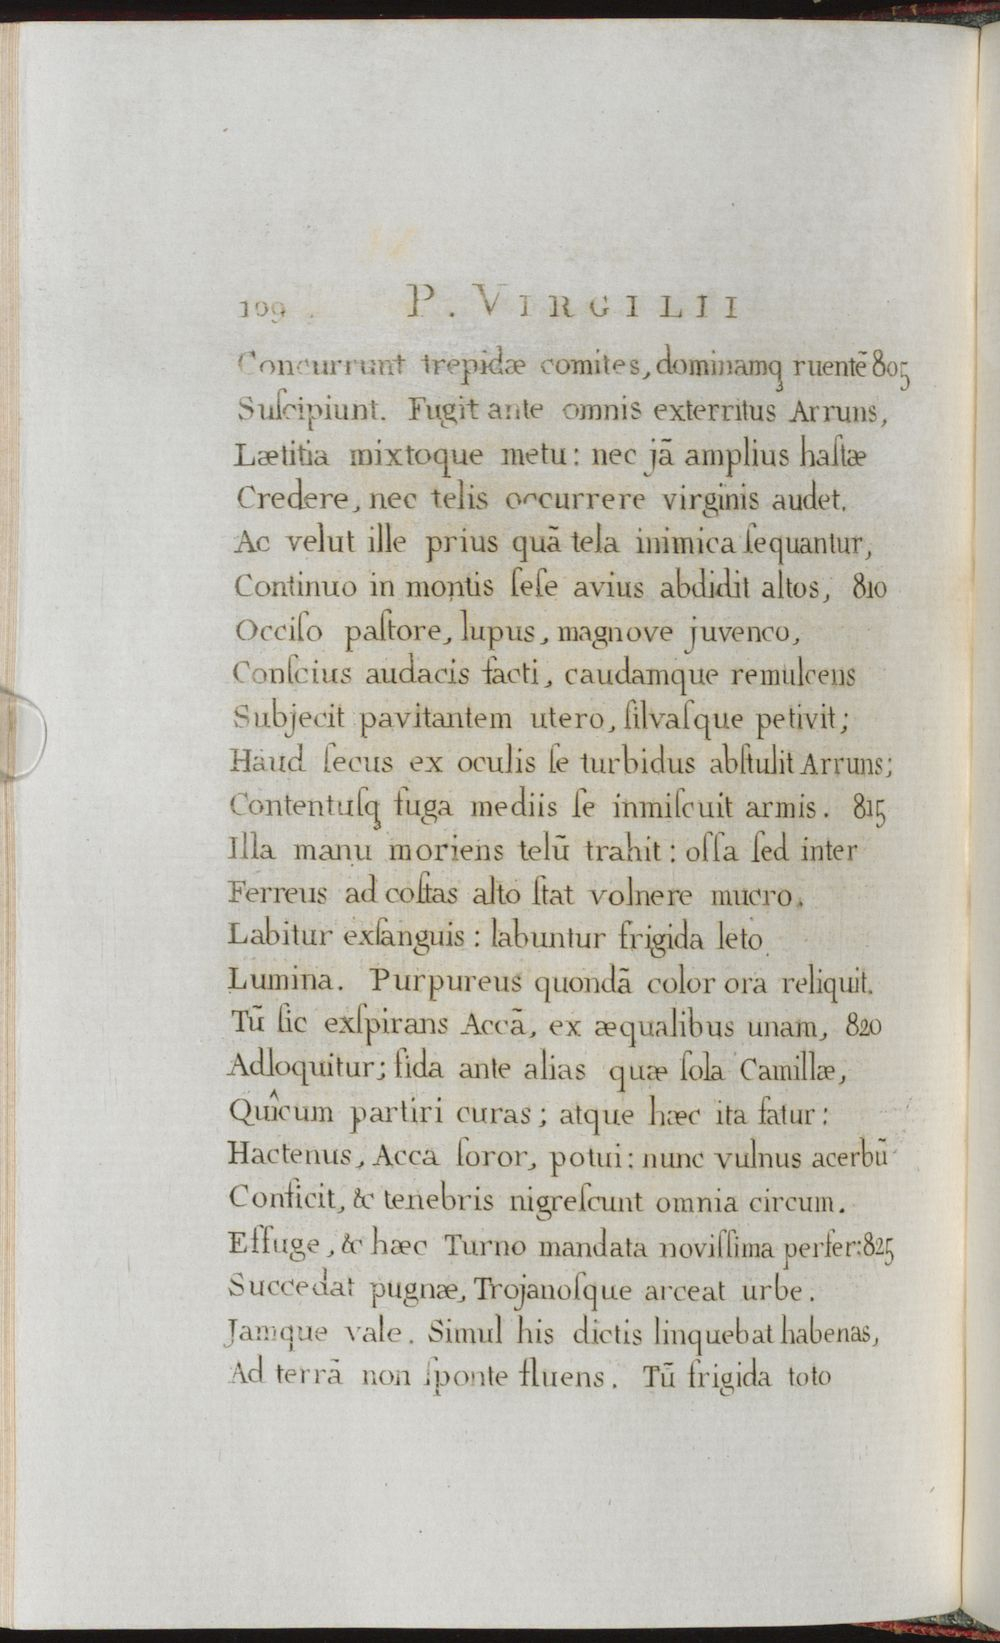 109 P. VIRGILII
Concurrunt trepidæ comites, dominamqꝫ ruentẽ 805
Suſcipiunt. Fugit ante omnis exterritus Arruns,
Lætitia mixtoque metu: nec jã amplius haſtæ
Credere, nec telis occurrere virginis audet.
Ac velut ille prius quã tela inimica ſequantur,
Continuo in montis ſeſe avius abdidit altos, 810
Occiſo paſtore, lupus, magnove juvenco,
Conſcius audacis facti, caudamque remulcens
Subjecit pavitantem utero, ſilvaſque petivit;
Haud ſecus ex oculis ſe turbidus abſtulit Arruns;
Contentuſqꝫ fuga mediis ſe inmiſcuit armis. 815
Illa manu moriens telũ trahit: oſſa ſed inter
Ferreus ad coſtas alto ſtat volnere mucro.
Labitur exſanguis: labuntur frigida leto
Lumina. Purpureus quondã color ora reliquit.
Tũ ſic exſpirans Accã, ex æqualibus unam, 820
Adloquitur; fida ante alias quæ ſola Camillæ,
Quîcum partiri curas; atque hæc ita fatur:
Hactenus, Acca ſoror, potui: nunc vulnus acerbũ
Conficit, & tenebris nigreſcunt omnia circum.
Effuge, & hæc Turno mandata noviſſima perfer: 825
Succedat pugnæ, Trojanoſque arceat urbe.
Jamque vale. Simul his dictis linquebat habenas,
Ad terrã non ſponte fluens. Tũ frigida toto